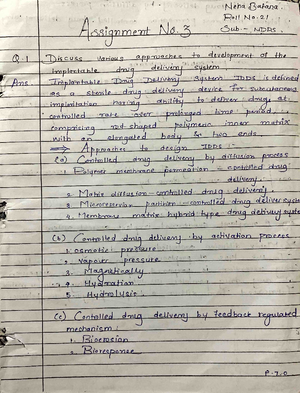 Neha Batana.
Roll No. 21
Assignment No. 3
Sub - NDDS.
Q-1 Discuss various approaches to development of the
implectable drug delivery system.
Ans Implantable Drug Delivery System IDDS is defined
as a sterile drug delivery device for subcutaneous
implantation having ability to deliver drugs at
controlled rate over prolonged time period,
comprising rod-shaped polymeric inner matrix
with an elongated body & two ends.
⇒ Approaches to design IDDS:-
(a) Controlled drug delivery by diffusion process
1. Polymer membrane permeation - controlled drug
delivery.
2. Matrix diffusion - controlled drug delivery
3. Microreservoir partition - controlled drug delivery system
4. Membrane matrix hybrid type drug delivery system
(b) Controlled drug delivery by activation process
1. osmotic pressure
2. vapour pressure
3. Magnetically
4. Hydration
5. Hydrolysis
(c) Controlled drug delivery by Feedback regulated
mechanism:
1. Bioerosion
2. Bioresponse
P.T.O